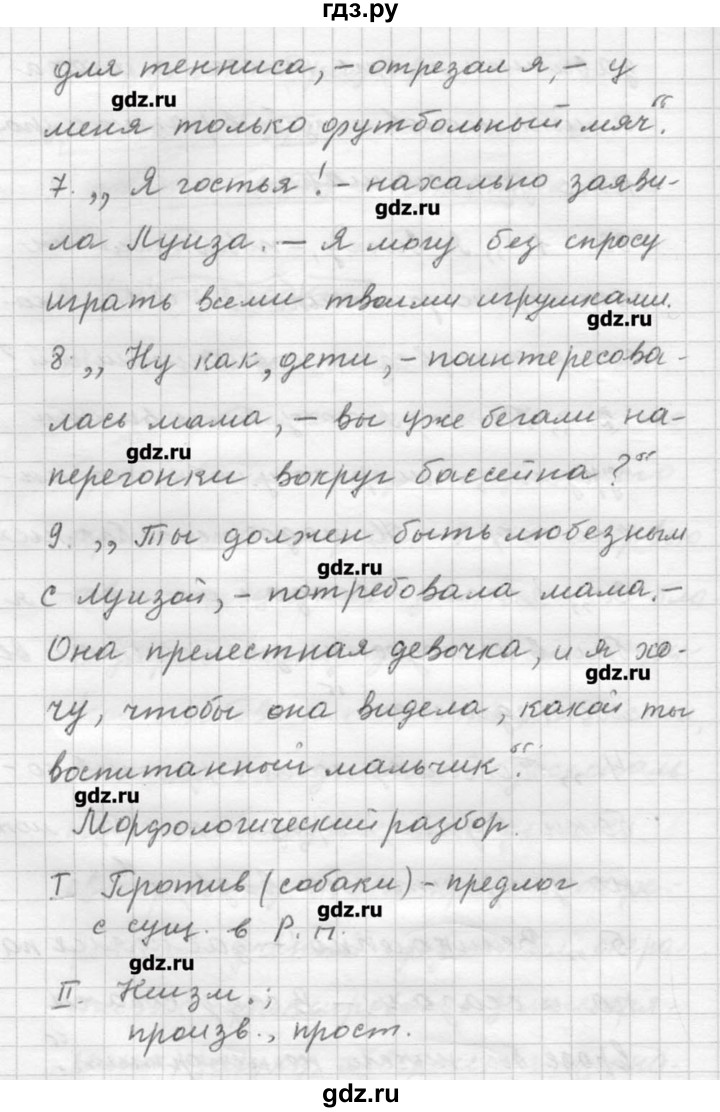 гдз.ру
для тенниса, – отрезал я, – у
gdz.ru
меня только футбольный мяч“.
7. „Я гостья! – нахально заяви-
gdz.ru
ла Луиза. – Я могу без спросу
играть всеми твоими игрушками.
gdz.ru
8. „Ну как, дети, – поинтересова-
лась мама, – вы уже бегали на-
gdz.ru
перегонки вокруг бассейна?“
9. „Ты должен быть любезным
gdz.ru
с Луизой, – потребовала мама. –
Она прелестная девочка, и я хо-
gdz.ru
чу, чтобы она видела, какой ты
воспитанный мальчик“.
gdz.ru
Морфологический разбор.
I Против (собаки) – предлог
gdz.ru
с сущ. в Р. п.
gdz.ru
II. Неизм.;
произв., прост.
gdz.ru